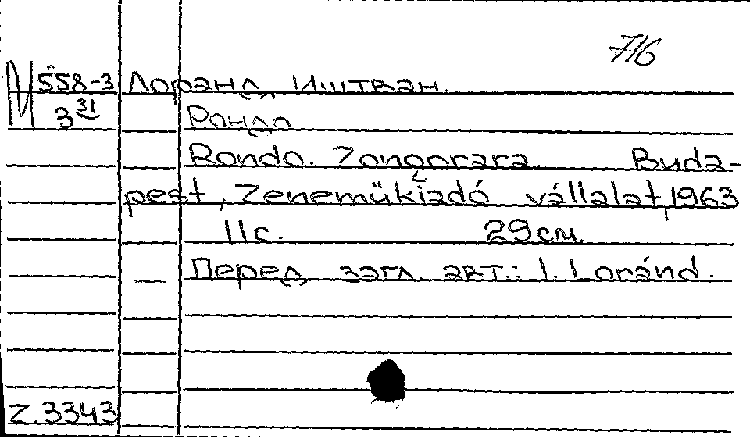 716
М 558-3 Лоранд, Иштван.
3 31 Рондо
Rondo. Zongorara. Buda-
pest, Zeneműkiadó vállalat, 1963
11 с. 29 см.
— Перед загл. авт.: I. Loránd.
Z.3343